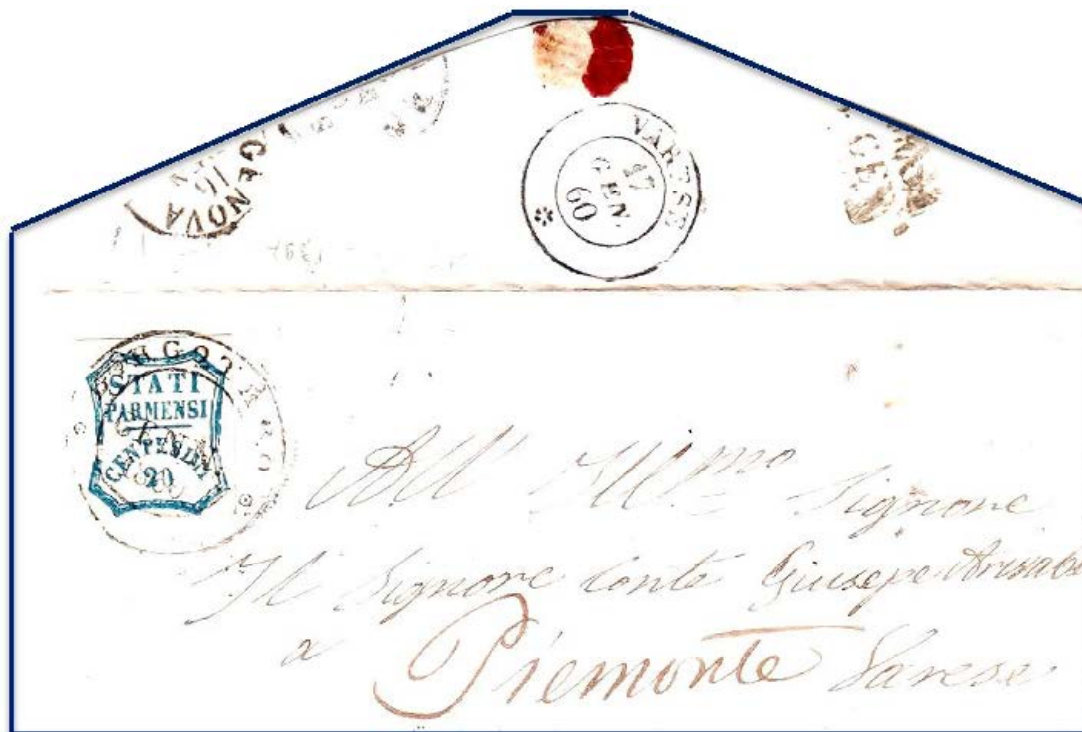 GENOVA
16
VARESE
17
GEN.
60
BORGOTARO
STATI
PARMENSI
CENTESIMI
20
All' Ill.mo Signore
Il Signore Conte Giusepe
a Piemonte Varese